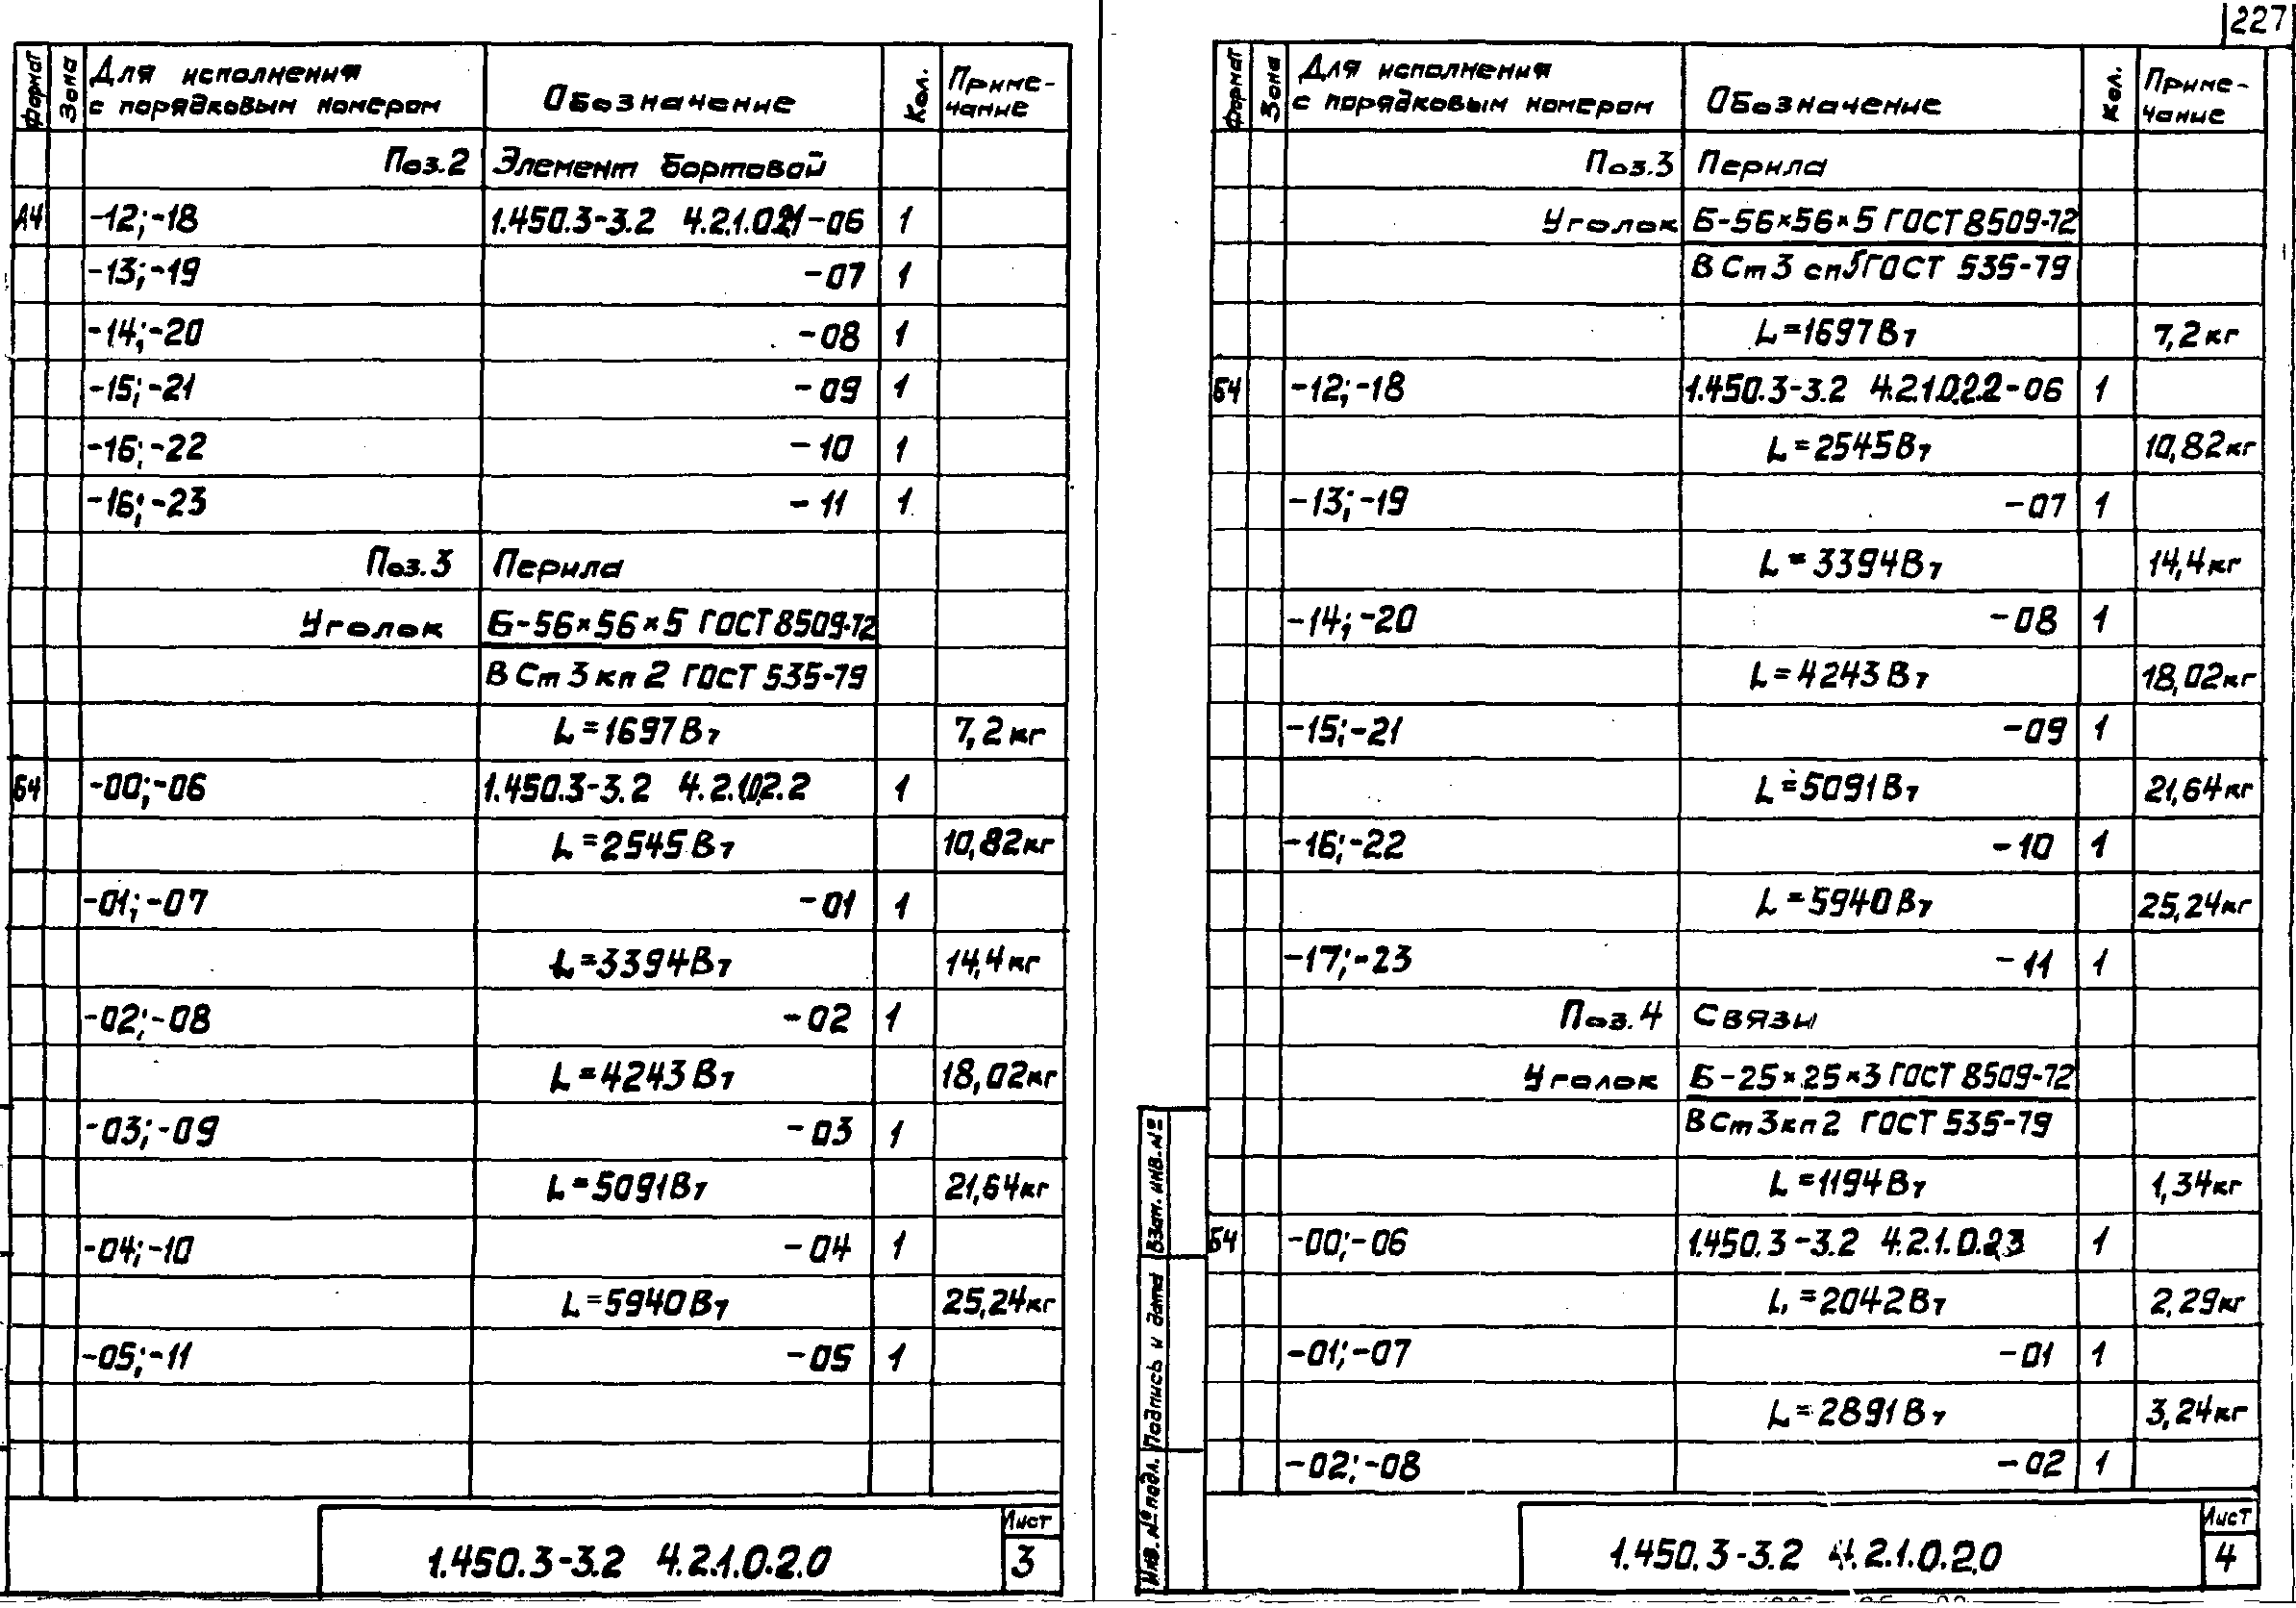 227
Формат Зона Для исполнения с порядковым номером Обозначение Кол. Примечание
Поз.2 Элемент бортовой
А4 -12;-18 1.450.3-3.2 4.2.1.0.2.1-06 1
-13;-19 -07 1
-14;-20 -08 1
-15;-21 -09 1
-16;-22 -10 1
-16;-23 -11 1
Поз.3 Перила
Уголок Б-56×56×5 ГОСТ 8509-72
ВСт3кп2 ГОСТ 535-79
L=1697Вт 7,2кг
Б4 -00;-06 1.450.3-3.2 4.2.1.0.2.2 1
L=2545Вт 10,82кг
-01;-07 -01 1
L=3394Вт 14,4кг
-02;-08 -02 1
L=4243Вт 18,02кг
-03;-09 -03 1
L=5091Вт 21,64кг
-04;-10 -04 1
L=5940Вт 25,24кг
-05;-11 -05 1
1.450.3-3.2 4.2.1.0.2.0
Лист
3
Формат Зона Для исполнения с порядковым номером Обозначение Кол. Примечание
Поз.3 Перила
Уголок Б-56×56×5 ГОСТ 8509-72
ВСт3сп5 ГОСТ 535-79
L=1697Вт 7,2кг
Б4 -12;-18 1.450.3-3.2 4.2.1.0.2.2-06 1
L=2545Вт 10,82кг
-13;-19 -07 1
L=3394Вт 14,4кг
-14;-20 -08 1
L=4243Вт 18,02кг
-15;-21 -09 1
L=5091Вт 21,64кг
-16;-22 -10 1
L=5940Вт 25,24кг
-17;-23 -11 1
Поз.4 Связи
Уголок Б-25×25×3 ГОСТ 8509-72
ВСт3кп2 ГОСТ 535-79
L=1194Вт 1,34кг
Б4 -00;-06 1.450.3-3.2 4.2.1.0.2.3 1
L=2042Вт 2,29кг
-01;-07 -01 1
L=2891Вт 3,24кг
-02;-08 -02 1
Инв. № подл. Подпись и дата Взам. инв. №
1.450.3-3.2 4.2.1.0.2.0
Лист
4